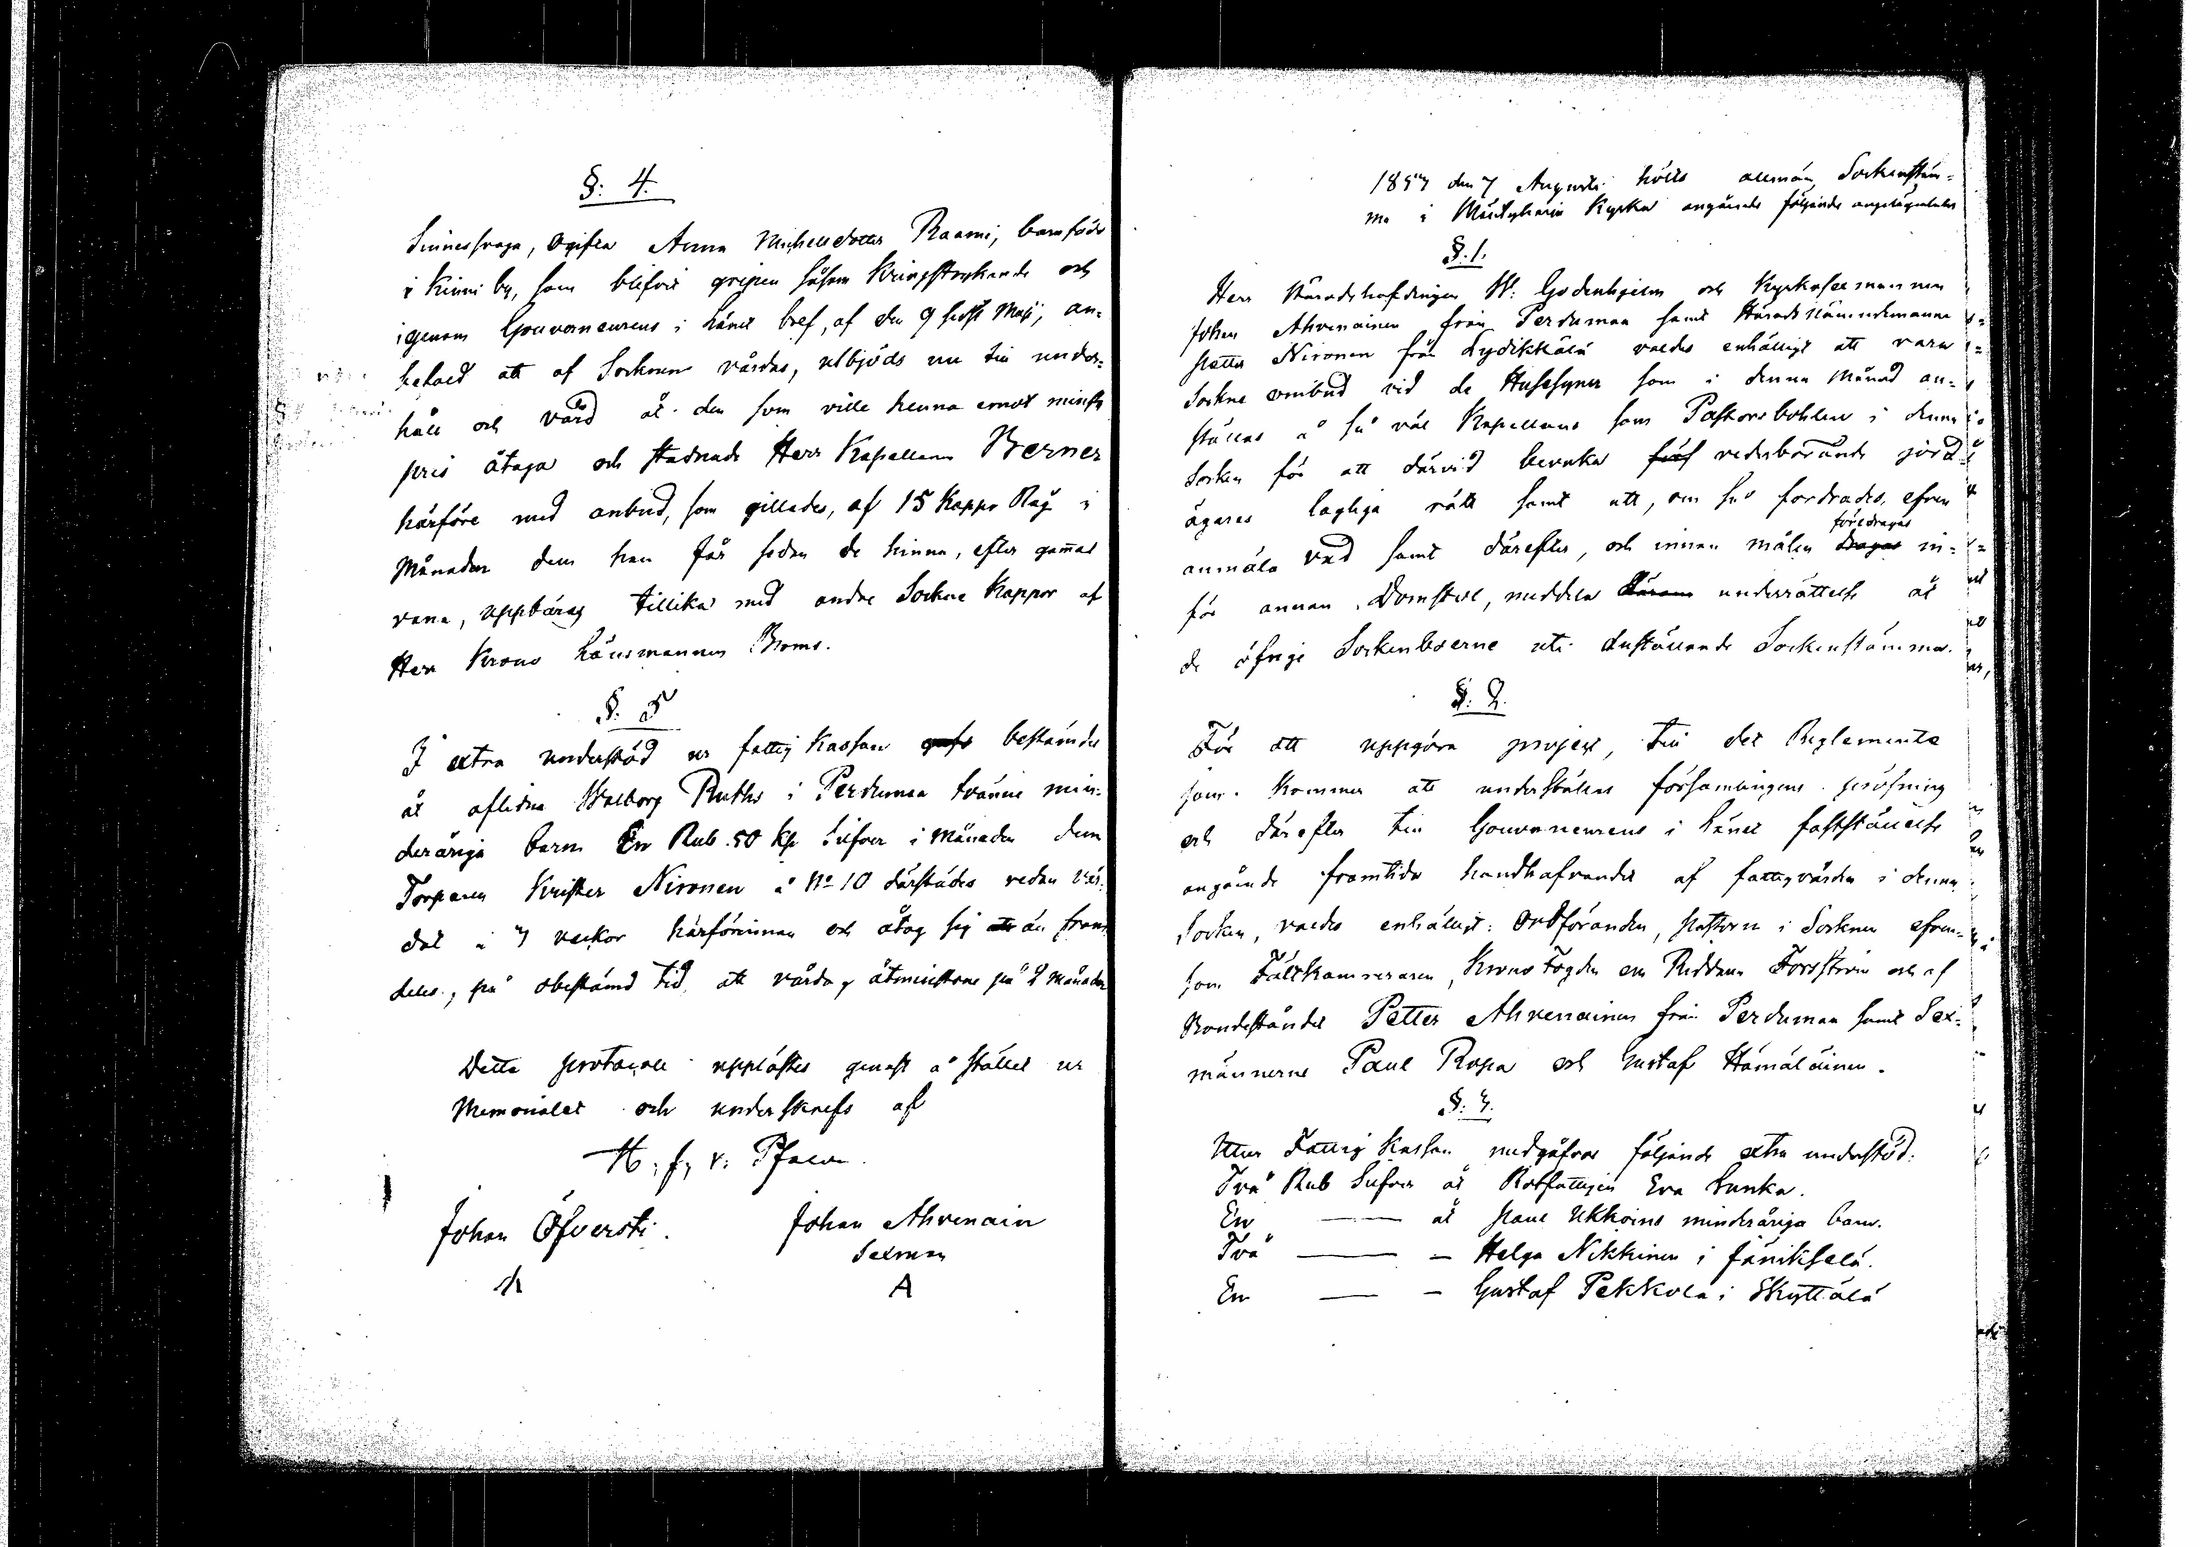 §: 4.
Sinnessvaga, Ogifta Anna Michelsdotter Raami, barnföd
i Kinni by, som blifvit gripen såsom kringstrykande och
igenom Gouverneurens i Länet bref, af den 9 sistl. Maji, an-
befald att af Socknen vårdas, utbjöds nu till under-
håll och vård åt den som ville henne emot minsta
pris åtaga och stadnade Herr Kapellan Berner
härföre med anbud, som gillades, af 15 kappr Råg i
Månaden dem han får sedan de hinna, efter gamal
vana, uppbäras tillika med andre Sockne kappor af
Herr Krono Länsmannen Broms.
§: 5
I extra understöd ur fattig Kassan bestämdes
åt aflidna Walborg Ruths i Perdumaa tvänne min-
deråriga barn En Rub. 50 kp Silfver i Månaden dem
Torparen Krister Nironen å No 10 därstädes redan vår-
dat i 7 veckor härförinnan och åtog sig än fram-
deles, på obestämd tid, att vårda, åtminstone på 2 månader
Detta protocoll upplästes genast å stället ur
Memorialet och underskrefs af
H. f. v. Pfaler.
Johan Öfversti. Johan Ahvenain
Sexman
A
1847 den 7 Augusti hölts allmän Sockenstäm-
ma i Mäntyharju Kyrka angående följande angelägenheter
§. 1.
Herr Häradshöfdingen W: Godenhjelm och Kyrkosexmannen
Johan Ahvenainen från Perdumaa samt Häradsnämndemannen
Petter Nironen från Lydikkälä valdes enhälligt att vara
Sockne ombud vid de Husesyner som i denna Månad an-
ställas å så väl Kapellans som Pastorsbohlen i denna
Socken för att därvid bevaka vederbörande jord-
ägares lagliga rätt samt att, om så fordrades, efven
anmäla vad samt därefter, och innan målen föredragas in-
för annan Domstol, meddela underrättelse åt
de öfrige Sockenboerne uti anställande Sockenstämma.
§. 2.
För att uppgöra project, till det Reglemente
som kommer att underställas församlingens pröfning
och därefter till Gouverneurens i Länet fastställelse
angående framtida handhafvandet af fattigvården i denna
Socken, valdes enhälligt: Ordföranden, pastorn i Socknen efven-
som Fältkamreraren, Krono Fogden och Riddaren Forsström och af
Bondeståndet Petter Ahvenainen från Perdumaa samt Sex-
männerne Paul Ropa och Gustaf Hämäläinen.
§. 3.
Utur Fattig Kassan medgåfvos följande extra understöd:
Två Rub Silfver åt Rotfattigen Eva Lunka.
En —— åt Paul Ukkoins minderåriga barn.
Två —— — Helga Nikkinen i Jänikselä.
En —— — Gustaf Pekkola i Skyttälä